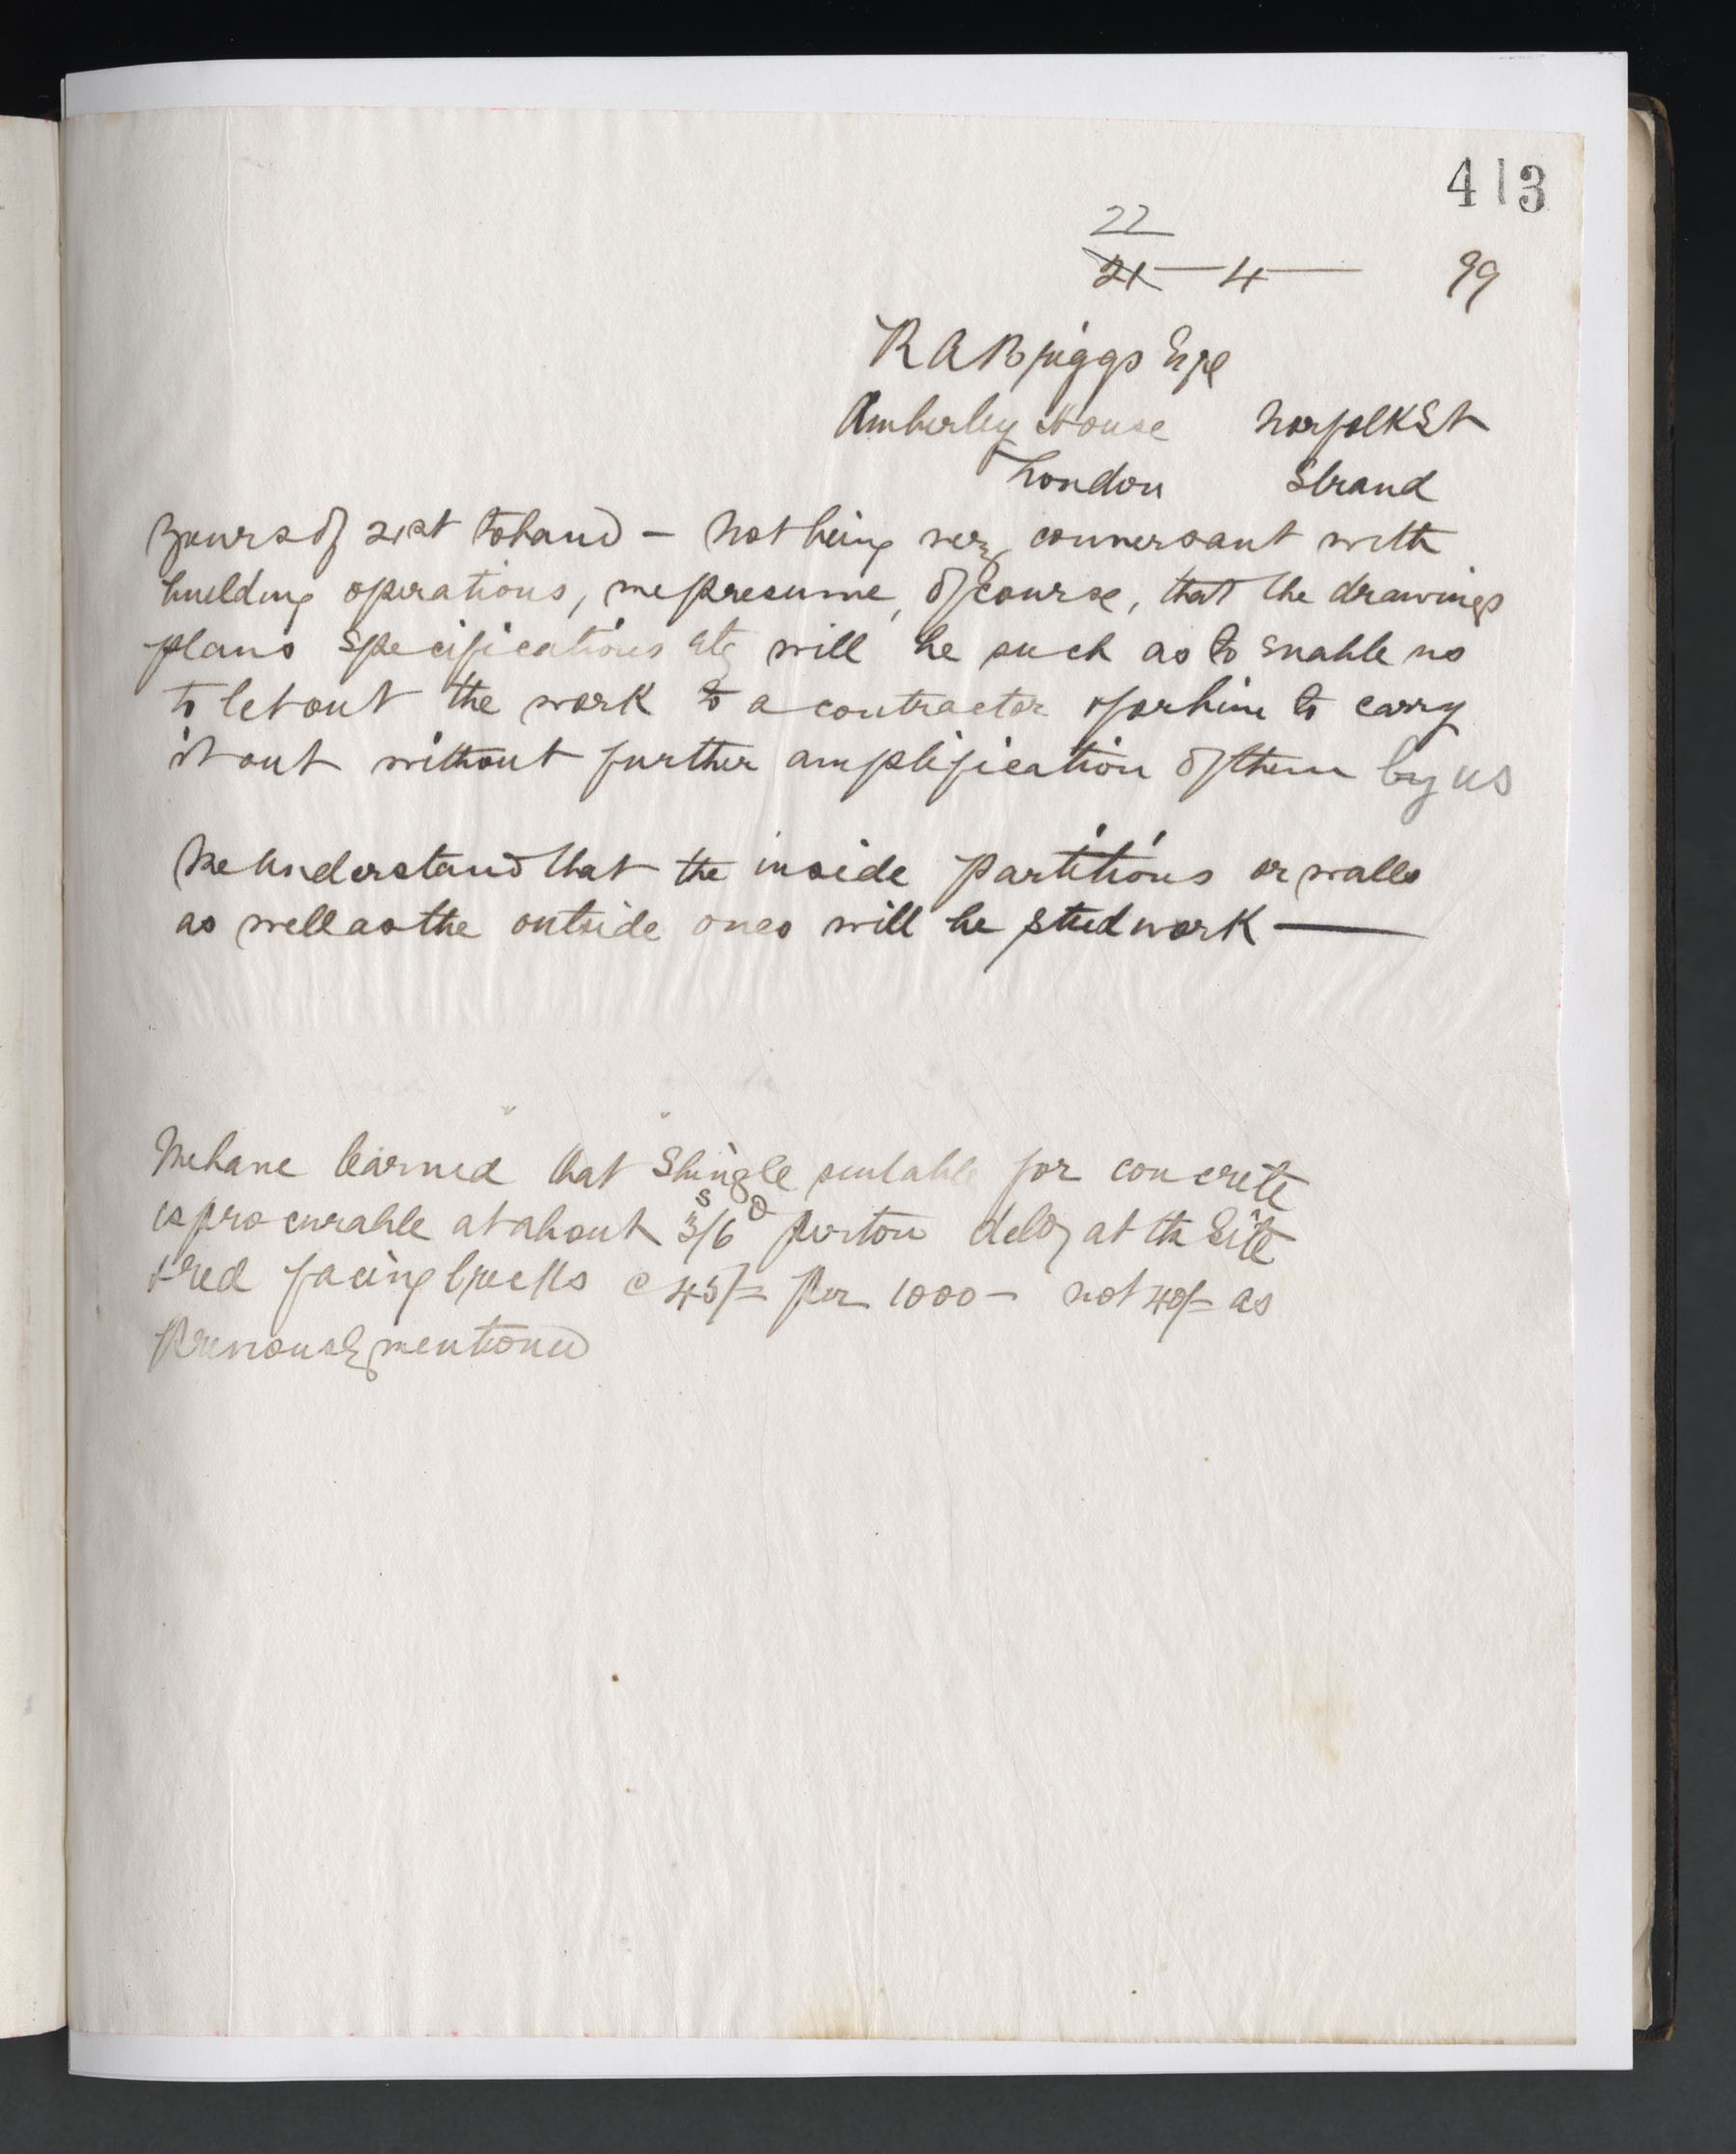 413
22
21 — 4 — 99
R A Briggs Esqe
Amberley House Norfolk St
London Strand
Yours of 21st to hand — Not being very conversant with
building operations, we presume, of course, that the drawings
plans specifications etc will be such as to enable us
to let out the work to a contractor & for him to carry
it out without further amplification of them by us
We understand that the inside partitions or walls
as well as the outside ones will be studwork —
We have learned that Shingle suitable for concrete
is procurable at about 3s/6d per ton deld at the Site
& red facing bricks @ 45/= per 1000 — not 40/= as
Previously mentioned